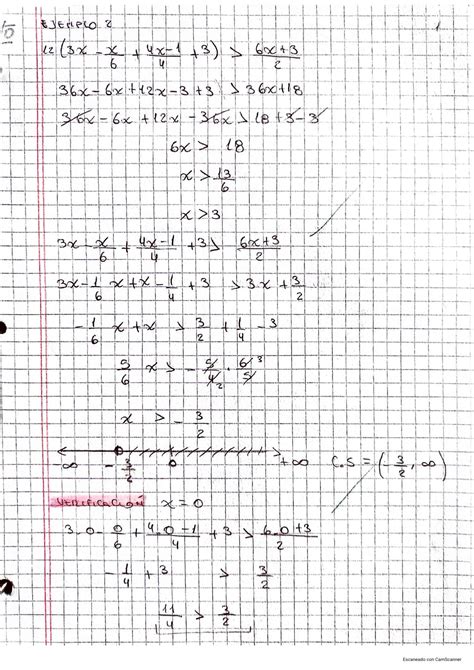 EJEMPLO 2
1
12(3x - x/6 + (4x-1)/4 + 3) > (6x+3)/2
36x - 6x + 12x - 3 + 3 > 36x + 18
36x - 6x + 12x - 36x > 18 + 3 - 3
6x > 18
x > 13/6
x > 3
3x - x/6 + (4x-1)/4 + 3 > (6x+3)/2
3x - 1/6 x + x - 1/4 + 3 > 3x + 3/2
- 1/6 x + x > 3/2 + 1/4 - 3
5/6 x > - 5/4 2 · 6/5 3
x > - 3/2
-∞ - 3/2 0 +∞ C.S = (- 3/2, ∞)
VERIFICACIÓN x = 0
3.0 - 0/6 + (4.0-1)/4 + 3 > (6.0+3)/2
- 1/4 + 3 > 3/2
11/4 > 3/2
Escaneado con CamScanner